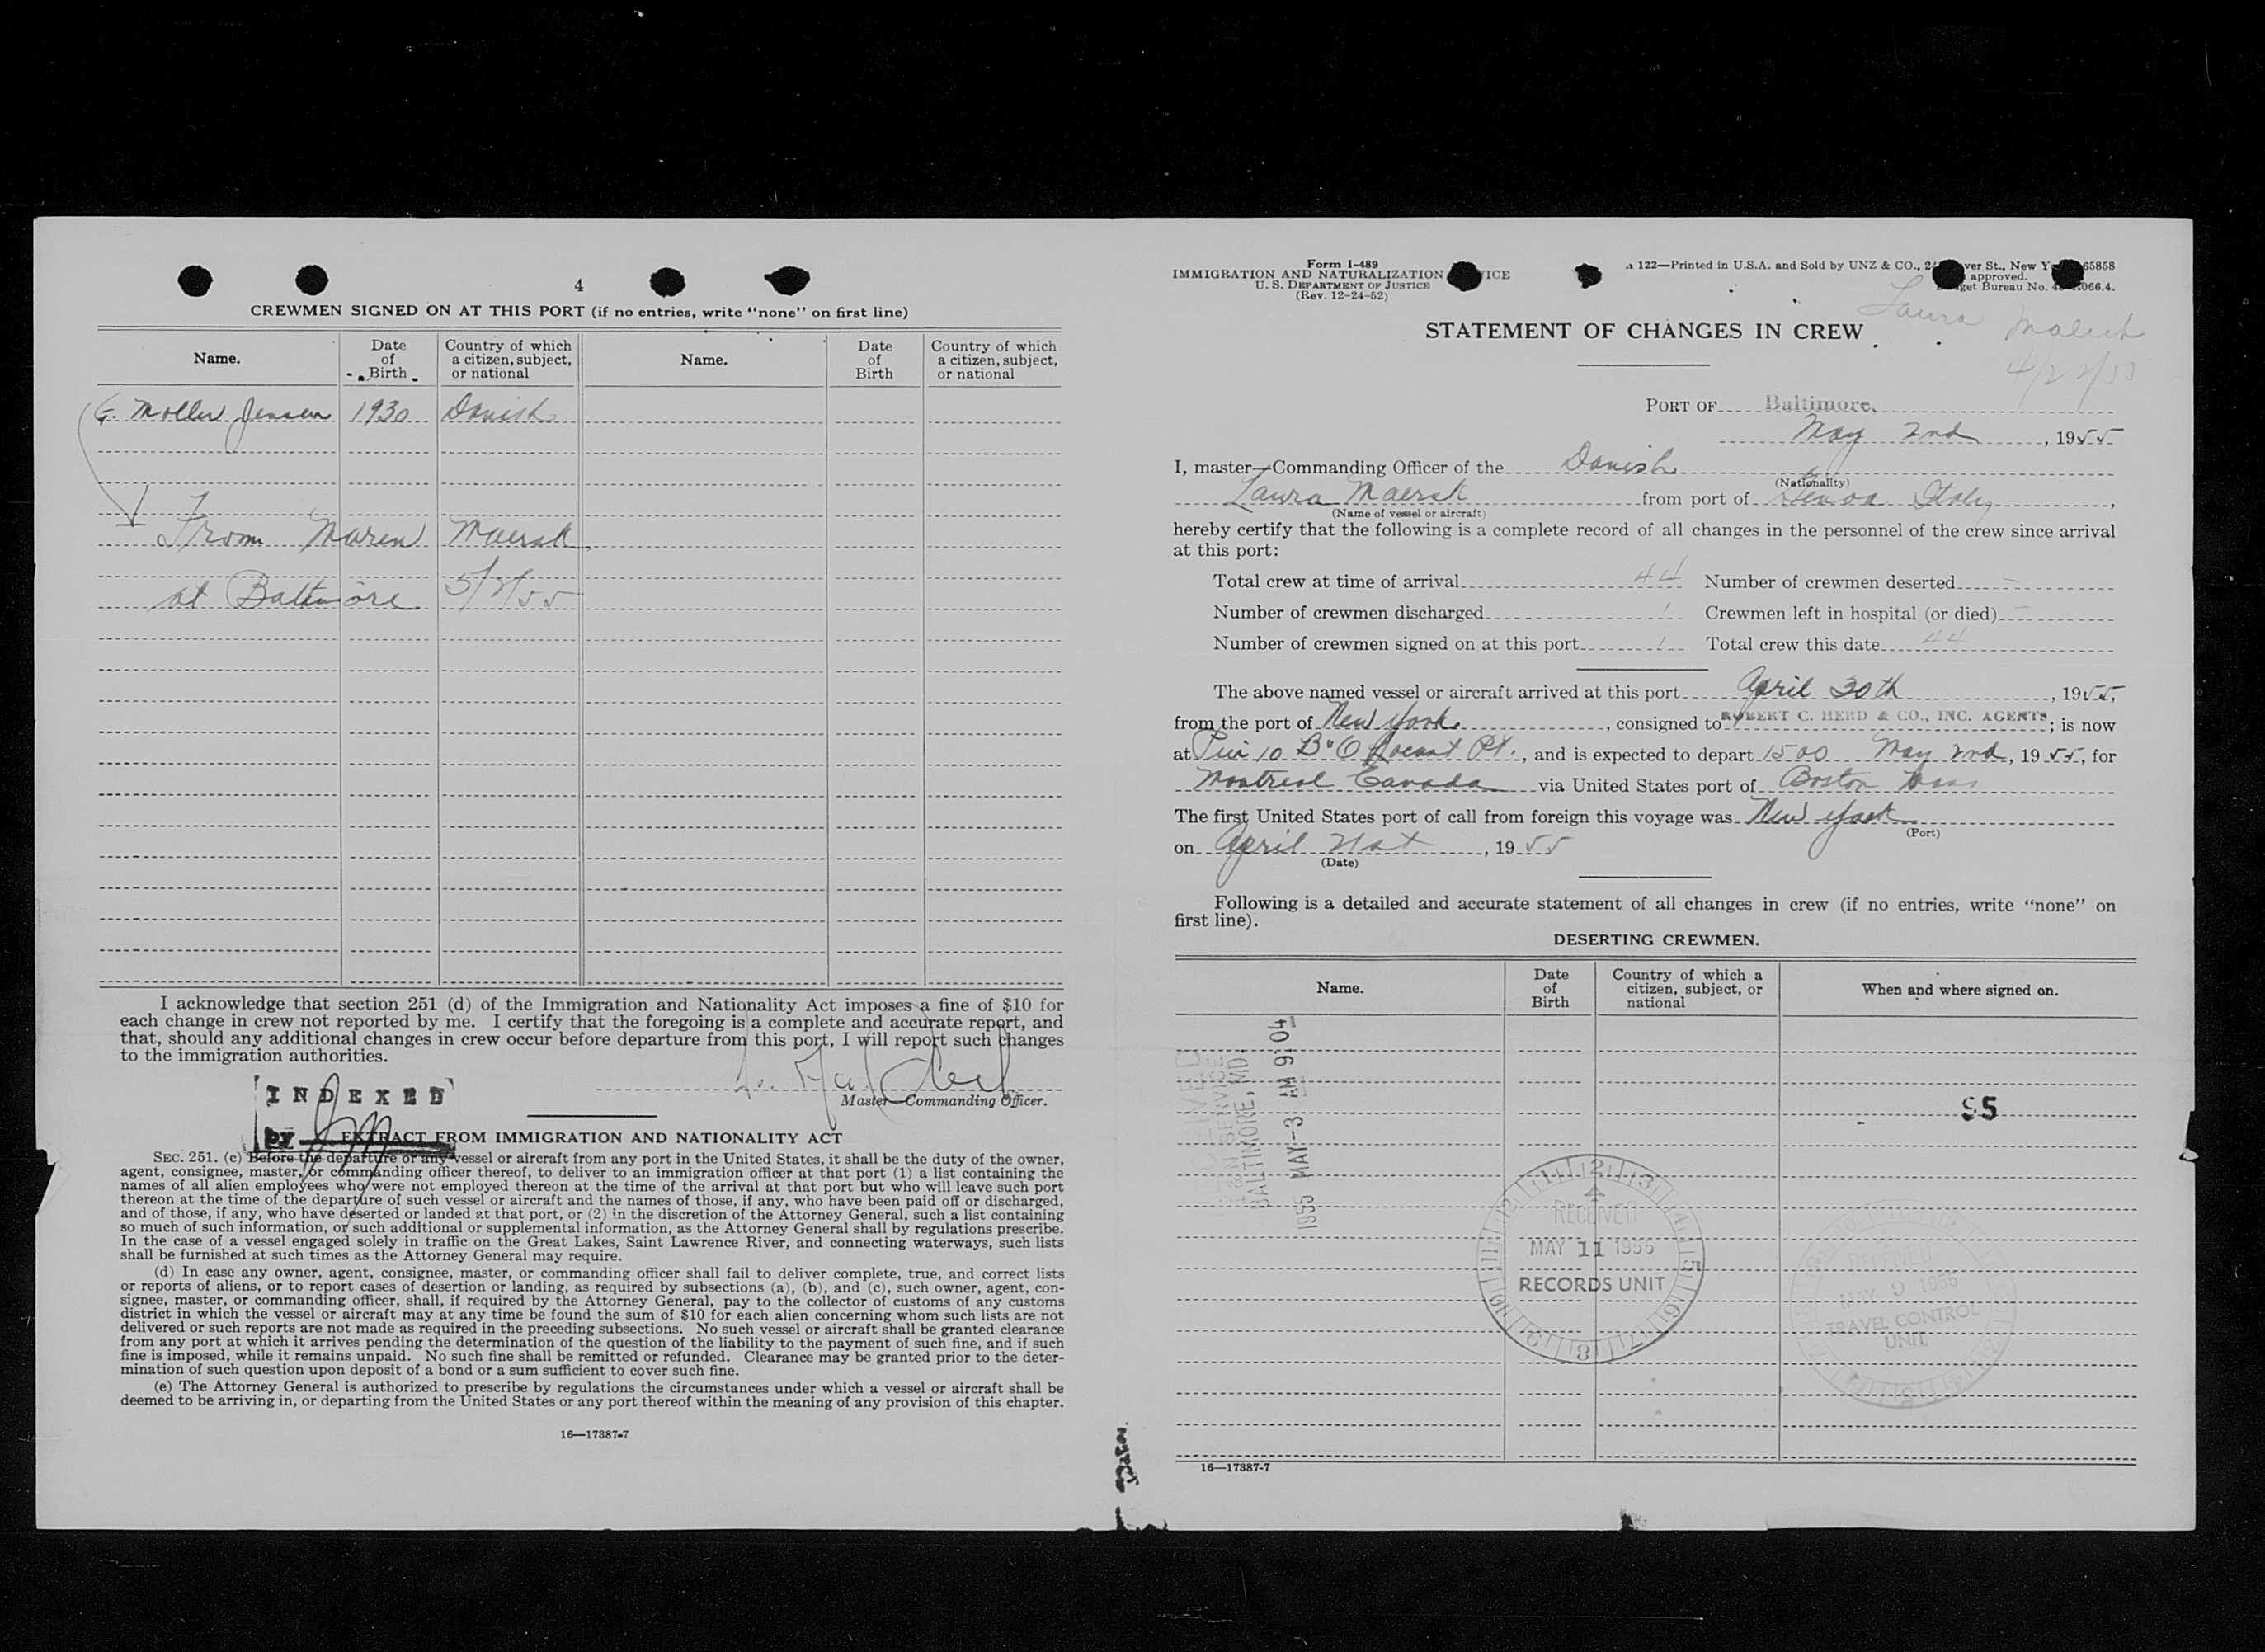 4
CREWMEN SIGNED ON AT THIS PORT (if no entries, write "none" on first line)
Name. Date of Birth Country of which a citizen, subject, or national Name. Date of Birth Country of which a citizen, subject, or national
G. Moller Jensen 1930 Danish
From Maren Maersk
at Baltimore 5/2/55
I acknowledge that section 251 (d) of the Immigration and Nationality Act imposes a fine of $10 for
each change in crew not reported by me. I certify that the foregoing is a complete and accurate report, and
that, should any additional changes in crew occur before departure from this port, I will report such changes
to the immigration authorities.
INDEXED
Master—Commanding Officer.
by
EXTRACT FROM IMMIGRATION AND NATIONALITY ACT
SEC. 251. (c) Before the departure of any vessel or aircraft from any port in the United States, it shall be the duty of the owner,
agent, consignee, master, or commanding officer thereof, to deliver to an immigration officer at that port (1) a list containing the
names of all alien employees who were not employed thereon at the time of the arrival at that port but who will leave such port
thereon at the time of the departure of such vessel or aircraft and the names of those, if any, who have been paid off or discharged,
and of those, if any, who have deserted or landed at that port, or (2) in the discretion of the Attorney General, such a list containing
so much of such information, or such additional or supplemental information, as the Attorney General shall by regulations prescribe.
In the case of a vessel engaged solely in traffic on the Great Lakes, Saint Lawrence River, and connecting waterways, such lists
shall be furnished at such times as the Attorney General may require.
(d) In case any owner, agent, consignee, master, or commanding officer shall fail to deliver complete, true, and correct lists
or reports of aliens, or to report cases of desertion or landing, as required by subsections (a), (b), and (c), such owner, agent, con-
signee, master, or commanding officer, shall, if required by the Attorney General, pay to the collector of customs of any customs
district in which the vessel or aircraft may at any time be found the sum of $10 for each alien concerning whom such lists are not
delivered or such reports are not made as required in the preceding subsections. No such vessel or aircraft shall be granted clearance
from any port at which it arrives pending the determination of the question of the liability to the payment of such fine, and if such
fine is imposed, while it remains unpaid. No such fine shall be remitted or refunded. Clearance may be granted prior to the deter-
mination of such question upon deposit of a bond or a sum sufficient to cover such fine.
(e) The Attorney General is authorized to prescribe by regulations the circumstances under which a vessel or aircraft shall be
deemed to be arriving in, or departing from the United States or any port thereof within the meaning of any provision of this chapter.
16—17387-7
Form I-489
IMMIGRATION AND NATURALIZATION
U. S. DEPARTMENT OF JUSTICE
(Rev. 12-24-52)
122—Printed in U.S.A. and Sold by UNZ & CO., St., New 65858
approved.
Bureau No.
Laura Maersk
4/22/55
STATEMENT OF CHANGES IN CREW
PORT OF Baltimore,
May 2nd, 1955
I, master—Commanding Officer of the Danish
(Nationality)
Laura Maersk from port of Genoa Italy,
(Name of vessel or aircraft)
hereby certify that the following is a complete record of all changes in the personnel of the crew since arrival
at this port:
Total crew at time of arrival 44 Number of crewmen deserted –
Number of crewmen discharged 1 Crewmen left in hospital (or died) –
Number of crewmen signed on at this port 1 Total crew this date 44
The above named vessel or aircraft arrived at this port April 30th, 1955,
from the port of New York, consigned to ROBERT C. HERD & CO., INC. AGENTS; is now
at Pier 10 B&O Locust Pt., and is expected to depart 1500 May 2nd, 1955, for
Montreal Canada via United States port of Boston Mass
The first United States port of call from foreign this voyage was New York
(Port)
on April 21st, 1955
(Date)
Following is a detailed and accurate statement of all changes in crew (if no entries, write "none" on
first line).
DESERTING CREWMEN.
Name. Date of Birth Country of which a citizen, subject, or national When and where signed on.
BALTIMORE, MD.
1955 MAY-3 AM 9:04
95
RECEIVED
MAY 11 1955
RECORDS UNIT
RECEIVED
MAY 9 1955
TRAVEL CONTROL
UNIT
16—17387-7